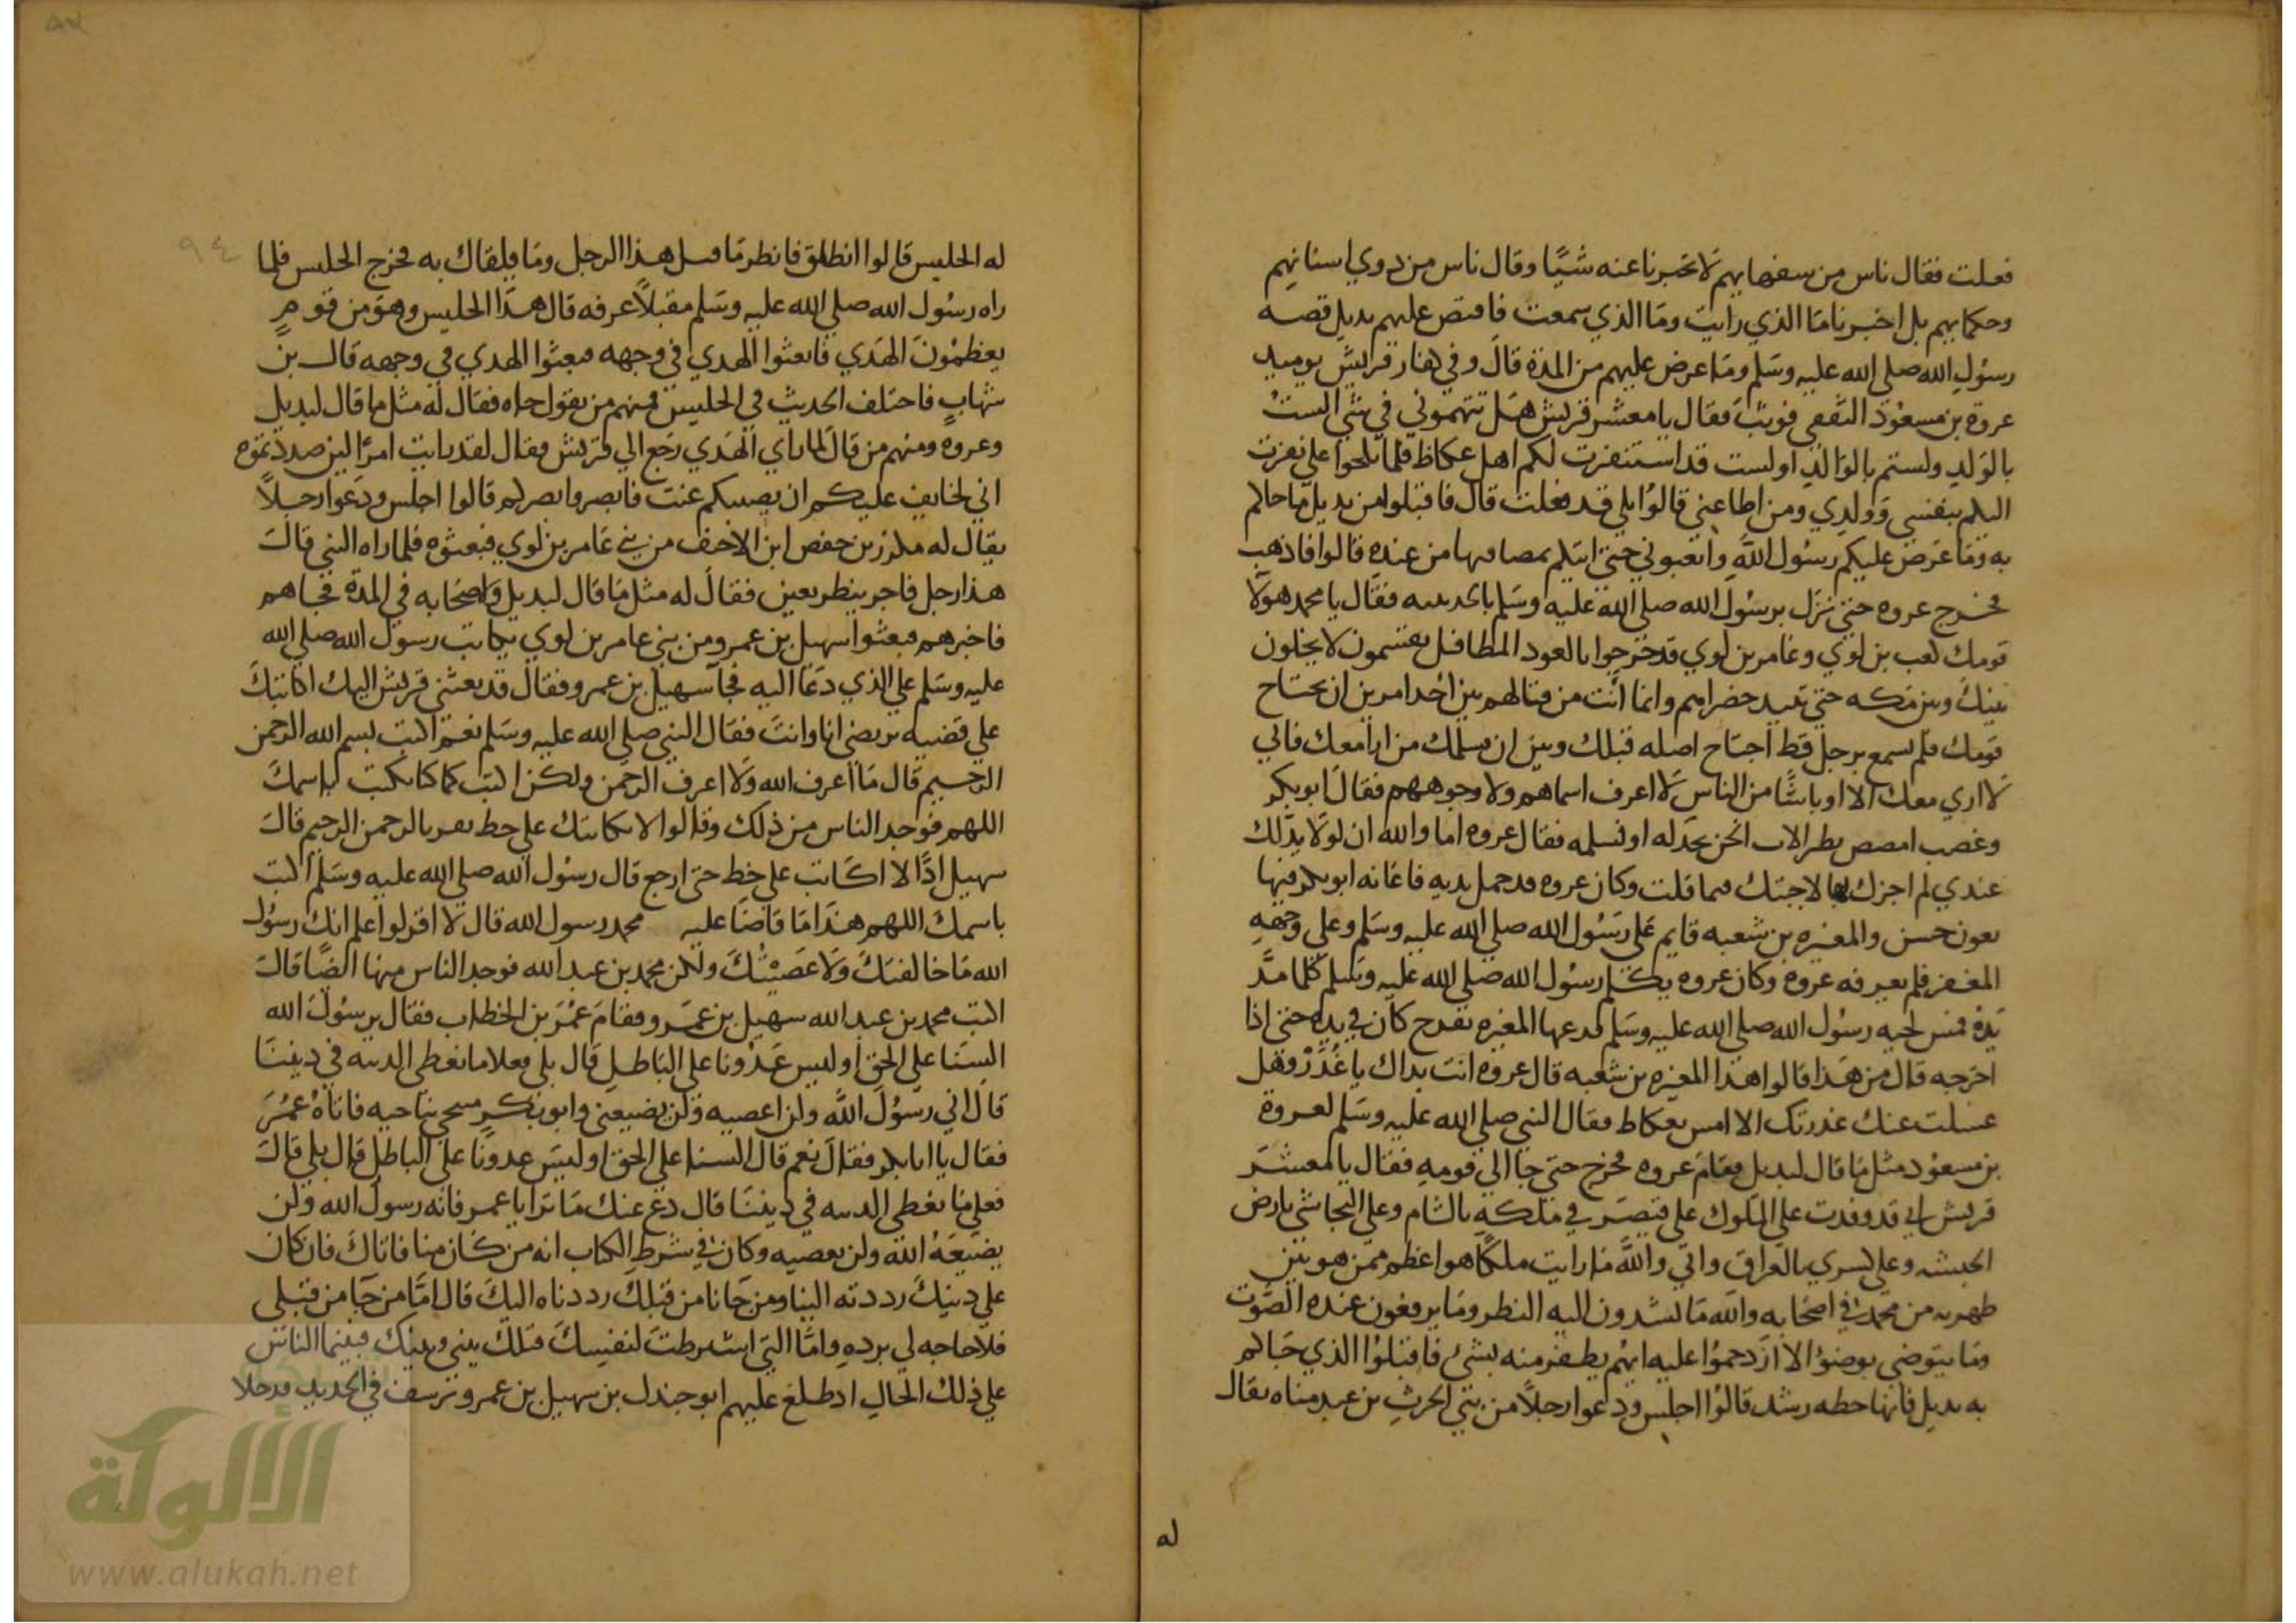 فعلت فقال ناس من سفهايهم لا تخبرنا عنه شيًا وقال ناس من ذوي اسنانهم
وحكمايهم بل اخبرنا ما الذي رايت وما الذي سمعت فاقتص عليهم بديل قصه
رسول الله صلى الله عليه وسلم وما عرض عليهم من المدة قال وفي كفار قريش يوميد
عروه بن مسعود الثقفي فوثب فقال يا معشر قريش هل تتهموني في شي الست
بالولد ولستم بالوالد اولست قد استنفرت لكم اهل عكاظ فلما بلحوا علي نفرت
اليكم بنفسي وولدي ومن اطاعني قالوا بلي قد فعلت قال فاقبلوا من بديل ما جاكم
به وما عرض عليكم رسول الله وابعثوني حتى اتيكم بمصافيها من عنده قالوا فاذهب
فخرج عروه حتى نزل برسول الله صلى الله عليه وسلم بالحديبيه فقال يا محمد هولا
قومك كعب بن لوي وعامر بن لوي قد خرجوا بالعود المطافل يقسمون لا يخلون
بينك وبين مكه حتى تبيد خضرايهم وانما انت من قتالهم بين احد امرين ان تجتاح
قومك فلم نسمع برجل قط اجتاح اصله قبلك وبين ان يسلمك من ارا معك فاني
لا اري معك الا اوباشًا من الناس لا اعرف اسماهم ولا وجوههم فقال ابو بكر
وغضب امصص بظر اللات انحن نخذله او نسلمه فقال عروه اما والله ان لولا يد لك
عندي لم اجزك بها لاجبتك فيما قلت وكان عروه قد حمل بديه فاعانه ابو بكر فيها
بعون حسن والمغيره بن شعبه قايم على رسول الله صلى الله عليه وسلم وعلى وجهه
المغفر فلم يعرفه عروه وكان عروه يكلم رسول الله صلى الله عليه وسلم كلما مدَّ
يده فمس لحيه رسول الله صلى الله عليه وسلم قدعها المغيره بقدح كان في يده حتى اذا
اخرجه قال من هذا قالوا هذا المغيره بن شعبه قال عروه انت بذاك يا غُدَر وهل
غسلت عنك غدرتك الا امس بعكاظ فقال النبي صلى الله عليه وسلم لعروة
بن مسعود مثل ما قال لبديل فقام عروه فخرج حتى جا الي قومه فقال يا لمعشر
قريش اني قد وفدت على الملوك على قيصر في ملكه بالشام وعلى النجاشي بارض
الحبشه وعلى كسري بالعراق واني والله ما رايت ملكًا هو اعظم ممن هو بين
ظهريه من محمد في اصحابه والله ما يشدون اليه النظر وما يرفعون عنده الصوت
وما يتوضى بوضوء الا ازدحموا عليه ايهم يظفر منه بشئ فاقبلوا الذي جاكم
به بديل فانها خطه رشد قالوا اجلس ودعوا رجلاً من بني الحرث بن عبد مناه يقال
له
له الحليس قالوا انطلق فانظر ما قبل هذا الرجل وما يلقاك به فخرج الحليس فلما
راه رسول الله صلى الله عليه وسلم مقبلاً عرفه قال هذا الحليس وهو من قومٍ
يعظمون الهدي فابعثوا الهدي في وجهه فبعثوا الهدي في وجهه قال بن
شهاب فاختلف الحديث في الحليس فمنهم من يقول جاه فقال له مثل ما قال لبديل
وعروه ومنهم من قال لما راي الهدي رجع الي قريش فقال لقد رايت امرًا لين صددتموه
اني لخايف عليكم ان يصيبكم عنت فابصروا بصركم قالوا اجلس ودعوا رجلاً
يقال له مكرز بن حفص ابن الاخيف من بني عامر بن لوي فبعثوه فلما راه النبي قال
هذا رجل فاجر ينظر بعين فقال له مثل ما قال لبديل واصحابه في المدة فجاهم
فاخبرهم فبعثوا سهيل بن عمرو من بني عامر بن لوي يكاتب رسول الله صلى الله
عليه وسلم علي الذي دعا اليه فجا سهيل بن عمرو فقال قد بعثني قريش اليك اكاتبك
علي قضيه نرتضى انا وانت فقال النبي صلى الله عليه وسلم نعم اكتب بسم الله الرحمن
الرحيم قال ما اعرف الله ولا اعرف الرحمن ولكن اكتب كما كنا نكتب باسمك
اللهم فوجد الناس من ذلك وقالوا لا نكاتبك على خط تقر بالرحمن الرحيم قال
سهيل اذًا لا اكاتب على خط حتى ارجع قال رسول الله صلى الله عليه وسلم اكتب
باسمك اللهم هذا ما قاضا عليه محمد رسول الله قال لا اقر لو اعلم انك رسول
الله ما خالفتك ولا عصيتك ولكن محمد بن عبد الله فوجد الناس منها ايضًا قال
اكتب محمد بن عبد الله سهيل بن عمرو فقام عمر بن الخطاب فقال يرسول الله
السنا على الحق اوليس عدونا على الباطل قال بلي فعلاما نعطي الدنيه في ديننا
قال اني رسول الله ولن اعصيه ولن يضيعني وابو بكر متنحي بناحيه فاتاه عمر
فقال يا ابا بكر فقال نعم قال السنا على الحق اوليس عدونا على الباطل قال بلي قال
فعلي ما نعطي الدنيه في ديننا قال دع عنك ما ترا يا عمر فانه رسول الله ولن
يضيعه الله ولن يعصيه وكان في شرط الكتاب انه من كان منا فاتاك فان كان
علي دينك رددته الينا ومن جانا من قبلك رددناه اليك قال امَّا من جا من قبلي
فلا حاجه لي برده وامَّا التي اشترطت لنفسك فتلك بيني وبينك فبينما الناس
علي ذلك الحال اذ طلع عليهم ابو جندل بن سهيل بن عمرو يرسف في الحديد قد خلا
٩٤
الألوكة
www.alukah.net